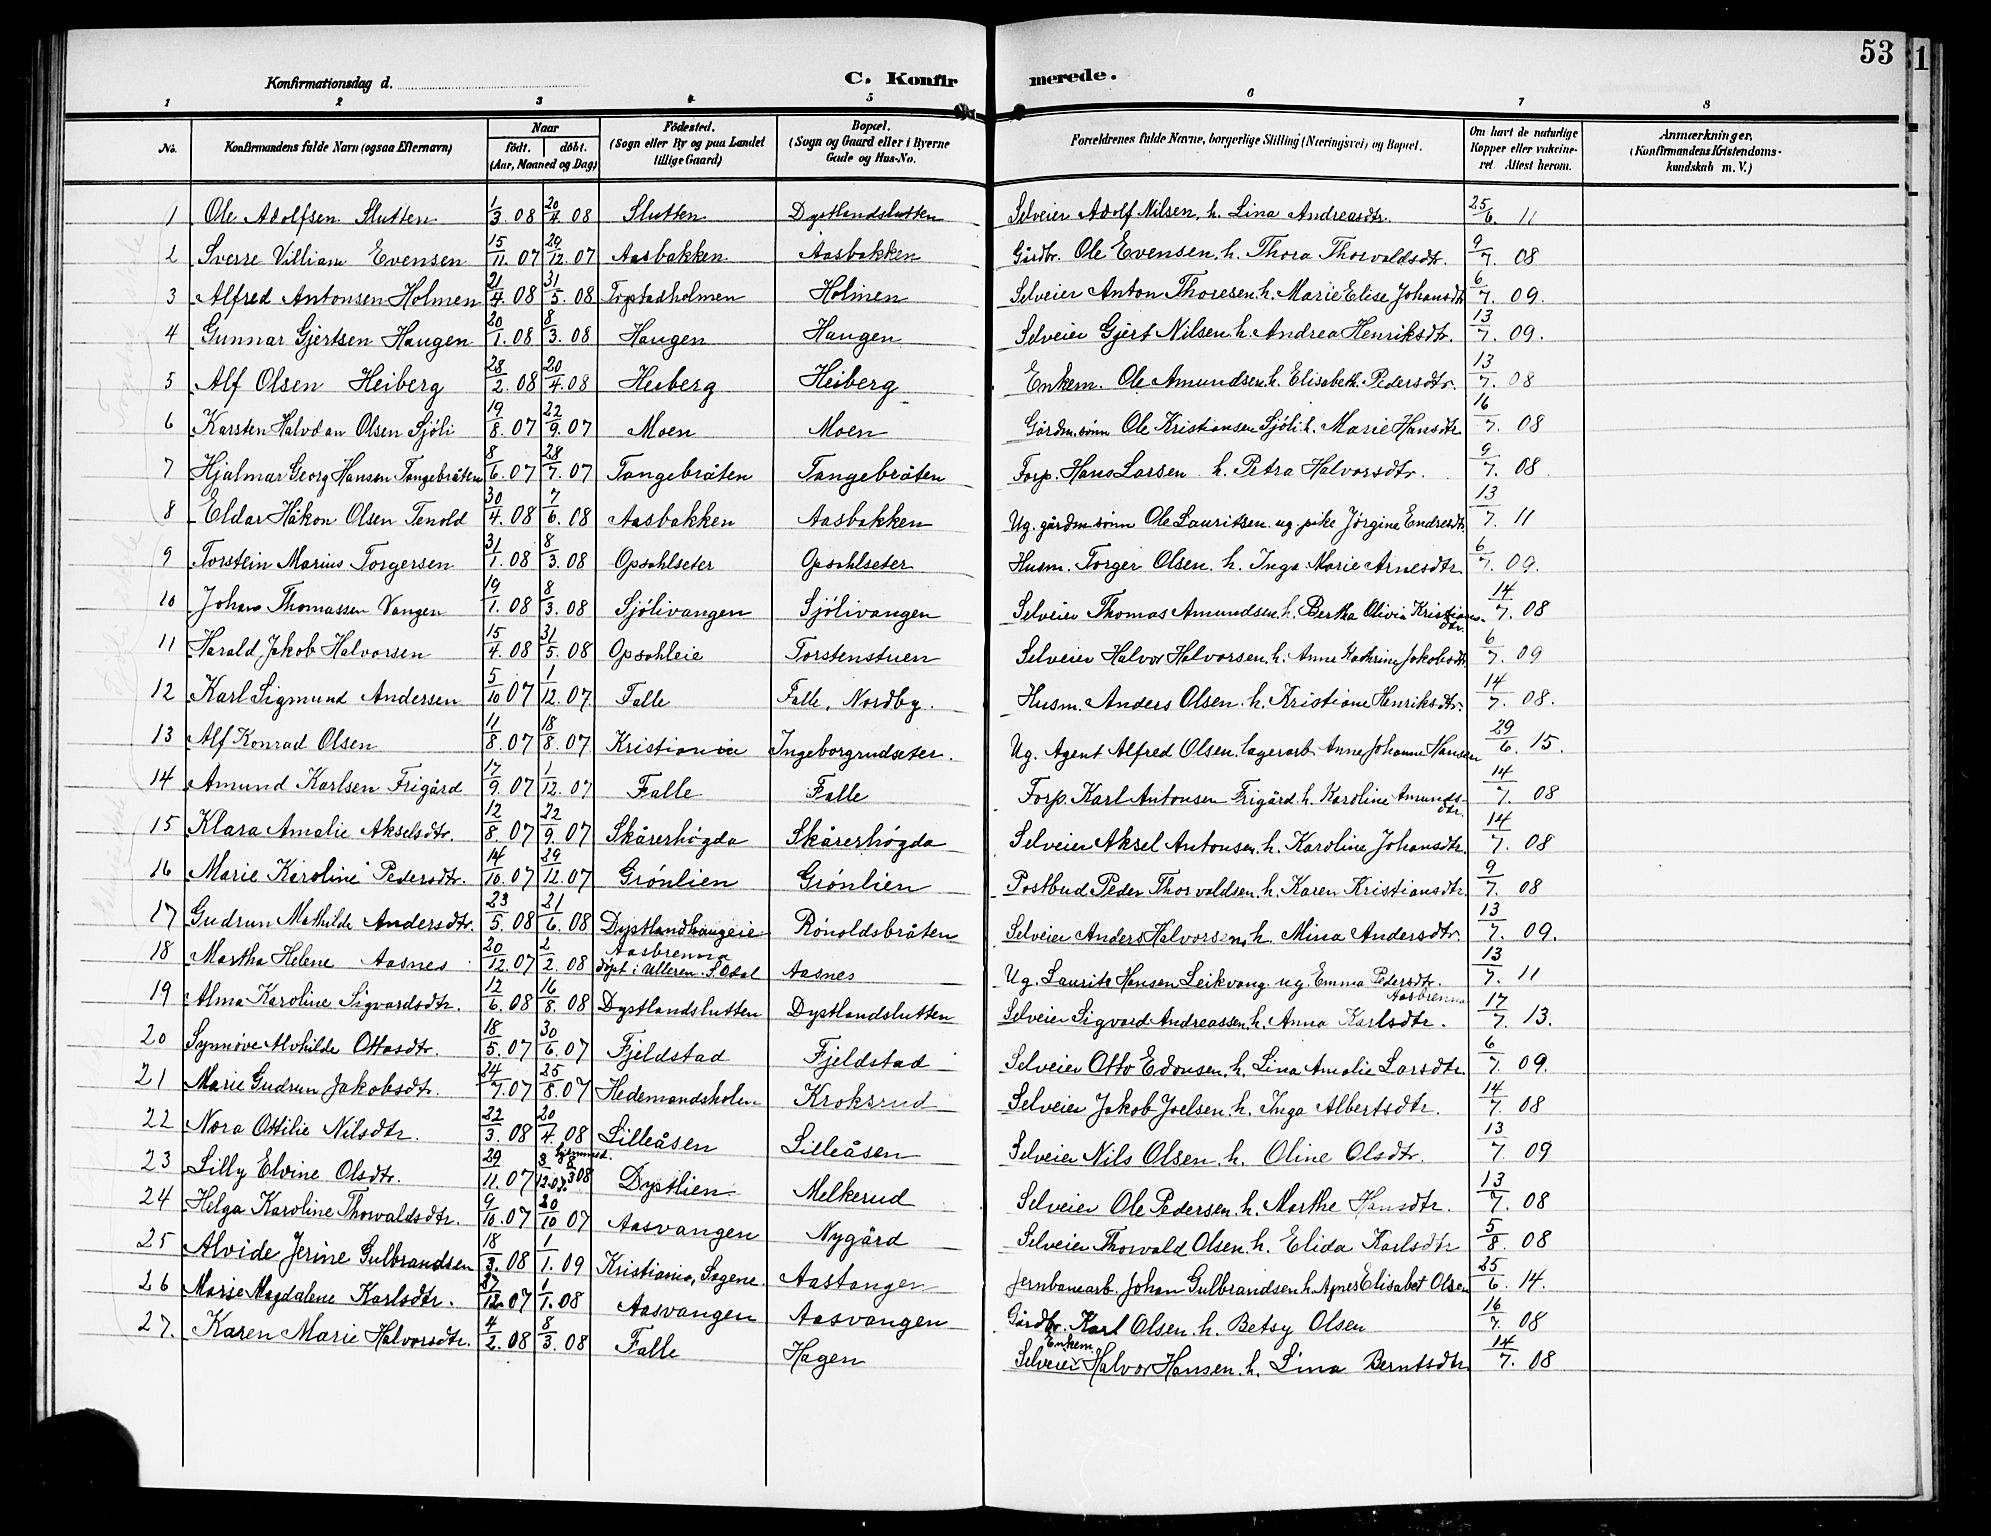 53
Konfirmationsdag d. C. Konfirmerede.
1 2 3 4 5 6 7 8
No. Konfirmandens fulde Navn (ogsaa Efternavn) Naar født. døbt. (Aar, Maaned og Dag) Fødested. (Sogn eller By og paa Landet tillige Gaard) Bopæl. (Sogn og Gaard eller i Byerne Gade og Hus-No. Forældrenes fulde Navne, borgerlige Stilling (Næringsvei) og Bopæl. Om havt de naturlige Kopper eller vakcineret. Attest herom. Anmærkninger. (Konfirmandens Kristendomskundskab m. V.)
1 Ole Adolfsen Slutten 1/3 08 20/4 08 Slutten Dystlandslutten Selveier Adolf Nilsen, h. Lina Andreasdtr. 25/6. 11
2 Sverre Villiam Evensen 15/11. 07 29/12. 07 Aasbakken Aasbakken Gårdbr. Ole Evensen. h. Thora Thorvaldsdtr. 9/7. 08
3 Alfred Antonsen Holmen 21/4. 08 31/5. 08 Topstadholmen Holmen Selveier Anton Thoresen. h. Marie Elise Johansdtr 6/7. 09.
4 Gunnar Gjertsen Haugen 20/1. 08 8/3. 08 Haugen Haugen Selveier Gjert Nilsen. h. Andrea Henriksdtr. 13/7. 09.
5 Alf Olsen Heiberg 28/2. 08 20/4. 08 Heiberg Heiberg Enkem. Ole Amundsen. h. Elisabeth Pedersdtr. 13/7. 08
6 Karsten Halvdan Olsen Sjöli 19/8. 07 22/9. 07 Moen Moen Gårdm.sönn Ole Kristiansen Sjöli h. Marie Hansdtr 16/7. 08
7 Hjalmar Georg Hansen Tangebråten 8/6. 07 28/7. 07 Tangebråten Tangebråten Forp. Hans Larsen h. Petra Halvorsdtr. 9/7. 08
8 Eldar Håkon Olsen Tenold 30/4. 08 7/6. 08 Aasbakken Aasbakken Ug. gårdm.sönn Ole Lauritsen. ug. pike Jörgine Endresdtr 13/7. 11
9 Torstein Marius Torgersen 31/1. 08 8/3. 08 Opsahlseter Opsahlseter Husm. Torger Olsen. h. Inga Marie Arnesdtr. 6/7. 09.
10 Johan Thomassen Vangen 19/1. 08 8/3. 08 Sjölivangen Sjölivangen Selveier Thomas Amundsen. h. Bertha Olivia Kristians-dtr. 14/7. 08
11 Harald Jakob Halvorsen 15/4. 08 31/5. 08 Opsahleie Torstenstuen Selveier Halvor Halvorsen. h. Anne Kathrine Jakobsdtr. 6/7. 09
12 Karl Sigmund Andersen 5/10 07 1/12. 07 Falle Falle, Nordby. Husm. Anders Olsen. h. Kristiane Henriksdtr. 14/7. 08.
13 Alf Konrad Olsen 11/8. 07 18/8. 07 Kristiania Ingeborgrudseter. Ug. Agent Alfred Olsen. lagerarb. Anne Johanne Hansen 29/6. 15.
14 Amund Karlsen Frigård 17/9. 07 1/12. 07 Falle Falle Forp. Karl Antonsen Frigård h. Karoline Amunds-dtr. 14/7. 08
15 Klara Amalie Akselsdtr. 12/8. 07 22/9. 07 Skårerhögda Skårerhögda Selveier Aksel Antonsen. h. Karoline Johansdtr. 14/7. 08
16 Marie Karoline Pedersdtr. 14/10. 07 29/12 07 Grönlien Grönlien Postbud Peder Thorvaldsen. h. Karen Kristiansdtr. 9/7. 08
17 Gudrun Mathilde Andersdtr. 23/5. 08 21/6. 08 Dystlandhaugeie Rönoldsbråten Selveier Anders Halvorsen, h. Mina Andersdtr. 13/7. 09.
18 Martha Helene Aasnes 20/12. 07 2/2. 08 Aasbrenna döpt i Ulleren S. Odal Aasnes Ug. Laurits Hansen Leikvang ug. Emma Pedersdtr. Aasbrenna 13/7. 11
19 Alma Karoline Sigvardsdtr. 12/6. 08 16/8. 08 Dystlandslutten Dystlandslutten Selveier Sigvard Andreassen. h. Anna Karlsdtr. 17/7. 13.
20 Synnöve Alvhilde Ottosdtr. 18/5. 07 30/6. 07 Fjeldstad Fjeldstad Selveier Otto Edonsen. h. Lina Amalie Larsdtr. 6/7. 09.
21 Marie Gudrun Jakobsdtr. 24/7. 07 25/8. 07 Hedemandsholen Kroksrud Selveier Jakob Joelsen. h. Inga Albertsdtr. 14/7. 08
22 Nora Ottilie Nilsdtr. 22/3. 08 20/4. 08 Lilleåsen Lilleåsen Selveier Nils Olsen. h. Oline Olsdtr. 13/7. 09
23 Lilly Elvine Olsdtr. 29/11. 07 3/12. 07 hjemmed. 8/3 08 Dystlien Melkerud Selveier Ole Pedersen. h. Marthe Hansdtr. 13/7. 08
24 Helga Karoline Thorvaldsdtr. 9/10. 07 20/10 07 Aasvangen Nygård Selveier Thorvald Olsen. h. Elida Karlsdtr 5/8. 08
25 Alvide Jerine Gulbrandsen 18/3. 08 1/1. 09 Kristiania, Sagene. Aastangen Jernbanearb. Johan Gulbrandsen h. Agnes Elisabet Olsen 25/6. 14.
26 Marie Magdalene Karlsdtr. 27/12. 07 1/1. 08 Aasvangen Aasvangen Gårdbr. Karl Olsen. h. Betsy Olsen 16/7. 08
27. Karen Marie Halvorsdtr. 4/2. 08 8/3. 08 Falle Hagen Enkem. Selveier Halvor Hansen. h. Lina Berntsdtr 14/7. 08